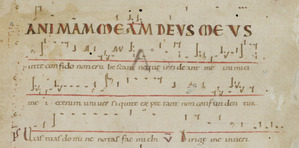 ANIMAM MEAM DEUS MEUS
in te confido non erubescam neque irrideant me inimici
me i etenim universi qui te expectant non confunden tur
Vias tuas domine notas fac michi V Dirige me in veri